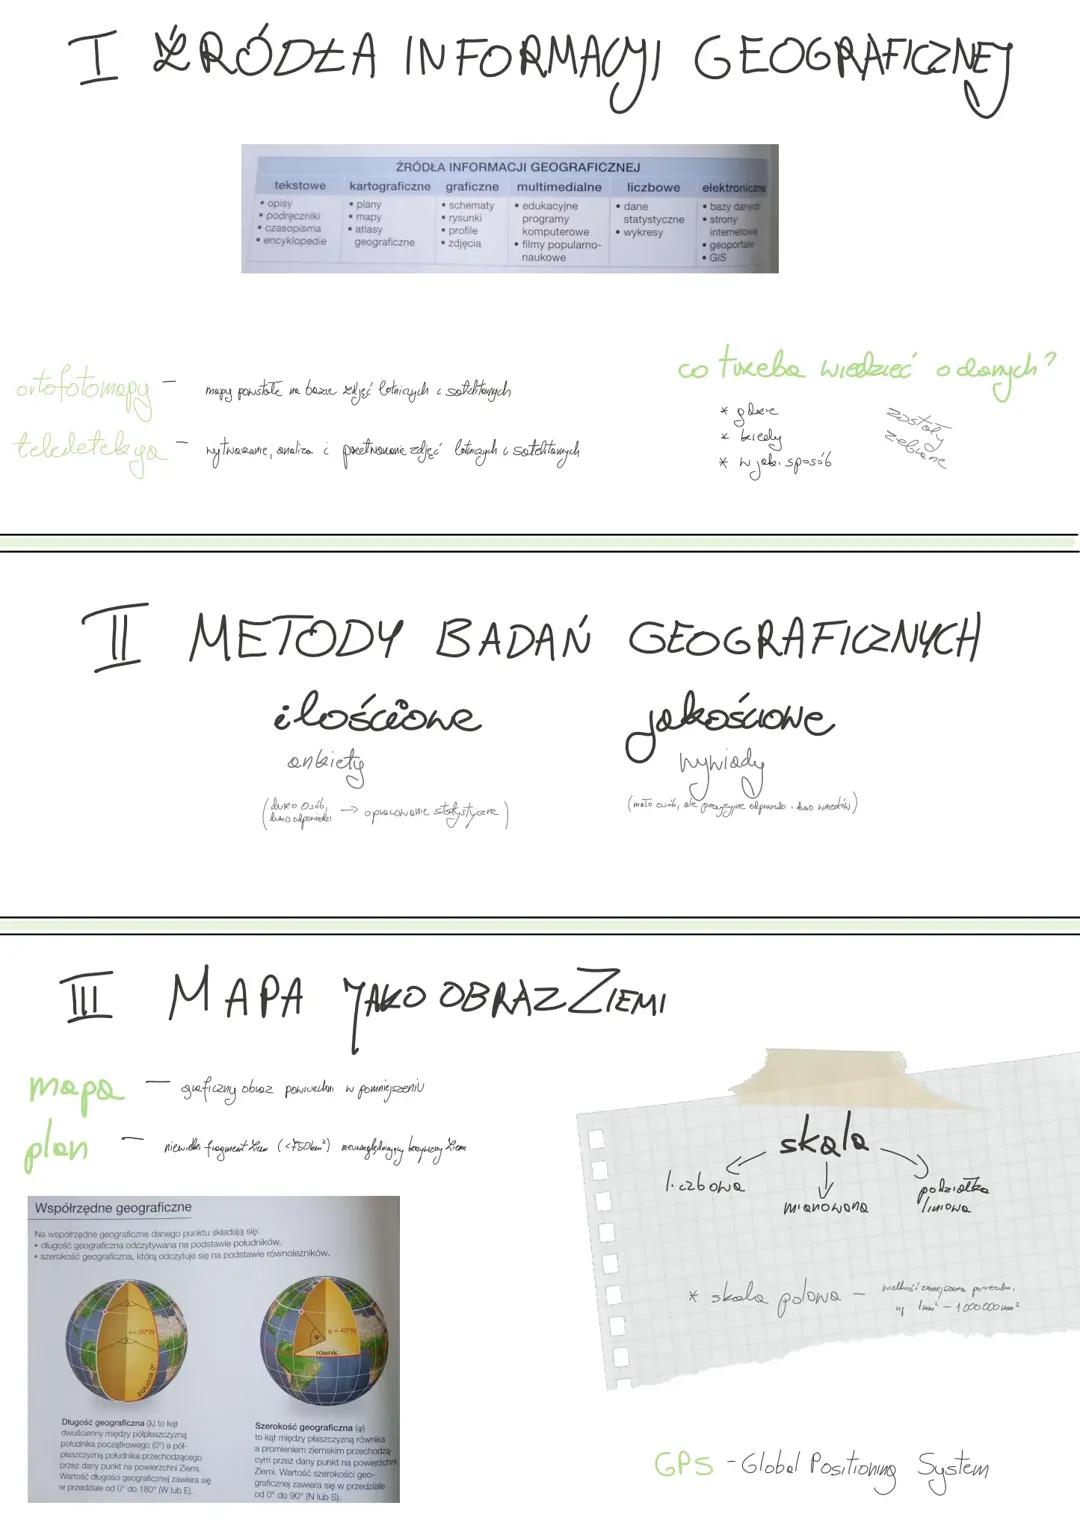 I ŹRÓDŁA INFORMACJI GEOGRAFICZNEJ
ŹRÓDŁA INFORMACJI GEOGRAFICZNEJ
tekstowe kartograficzne graficzne multimedialne liczbowe elektroniczne
• opisy
• podręczniki
• czasopisma
• encyklopedie
• plany
• mapy
• atlasy
geograficzne
• schematy
• rysunki
• profile
• zdjęcia
• edukacyjne
programy
komputerowe
• filmy popularno-
naukowe
• dane
statystyczne
• wykresy
• bazy danych
• strony
internetowe
• geoportale
• GIS
ortofotomapy – mapy powstałe na bazie zdjęć lotniczych i satelitarnych
teledetekcja – wytwarzanie, analiza i przetwarzanie zdjęć lotniczych i satelitarnych
co trzeba wiedzieć o danych?
* gdzie
* kiedy
* w jaki sposób
zostały
zebrane
II METODY BADAŃ GEOGRAFICZNYCH
ilościowe
ankiety
(dużo osób,
dużo odpowiedzi → opracowanie statystyczne)
jakościowe
wywiady
(mało osób, ale precyzyjne odpowiedzi i dużo wniosków)
III MAPA JAKO OBRAZ ZIEMI
mapa – graficzny obraz powierzchni w pomniejszeniu
plan – niewielki fragment Ziemi (<750km²) nieuwzględniający krzywizny Ziemi
Współrzędne geograficzne
Na współrzędne geograficzne danego punktu składają się:
• długość geograficzna odczytywana na podstawie południków,
• szerokość geograficzna, którą odczytuje się na podstawie równoleżników.
λ= 80°W
południk 0°
φ = 40°N
φ
równik
Długość geograficzna (λ) to kąt
dwuścienny między półpłaszczyzną
południka początkowego (0°) a pół-
płaszczyzną południka przechodzącego
przez dany punkt na powierzchni Ziemi.
Wartość długości geograficznej zawiera się
w przedziale od 0° do 180° (W lub E).
Szerokość geograficzna (φ)
to kąt między płaszczyzną równika
a promieniem ziemskim przechodzą-
cym przez dany punkt na powierzchni
Ziemi. Wartość szerokości geo-
graficznej zawiera się w przedziale
od 0° do 90° (N lub S).
skala
liczbowa
mianowana
podziałka
liniowa
* skala polowa – wielkość zmniejszenia powierzchni,
np 1mm² – 1 000 000 mm²
GPS - Global Positioning System